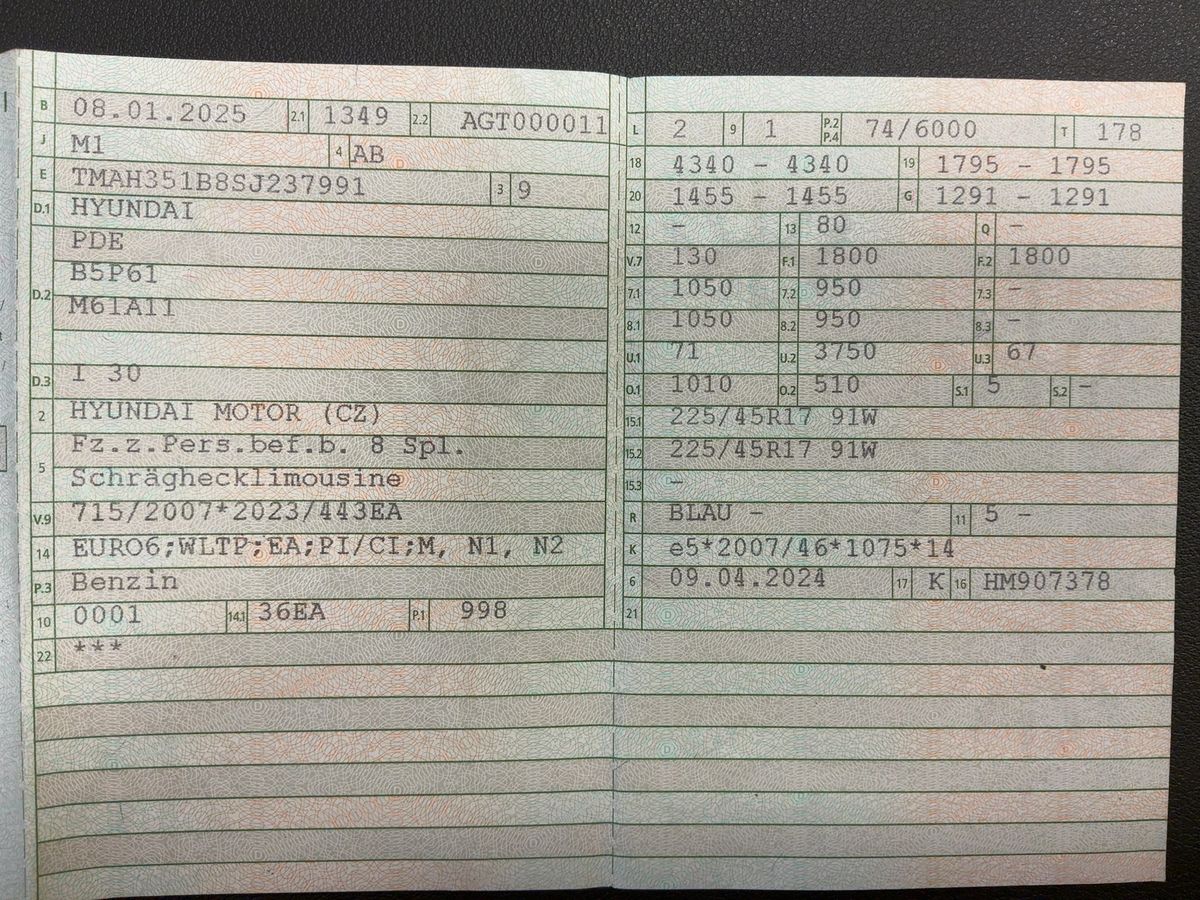 B 08.01.2025 2.1 1349 2.2 AGT000011
J M1 4 AB
E TMAH351B8SJ237991 3 9
D.1 HYUNDAI
D.2 PDE
B5P61
M61A11
D.3 I 30
2 HYUNDAI MOTOR (CZ)
5 Fz.z.Pers.bef.b. 8 Spl.
Schräghecklimousine
V.9 715/2007*2023/443EA
14 EURO6;WLTP;EA;PI/CI;M, N1, N2
P.3 Benzin
10 0001 14.1 36EA P.1 998
22 ***
L 2 9 1 P.2 P.4 74/6000 T 178
18 4340 - 4340 19 1795 - 1795
20 1455 - 1455 G 1291 - 1291
12 - 13 80 Q -
V.7 130 F.1 1800 F.2 1800
7.1 1050 7.2 950 7.3 -
8.1 1050 8.2 950 8.3 -
U.1 71 U.2 3750 U.3 67
O.1 1010 O.2 510 S.1 5 S.2 -
15.1 225/45R17 91W
15.2 225/45R17 91W
15.3 -
R BLAU - 11 5 -
K e5*2007/46*1075*14
6 09.04.2024 17 K 16 HM907378
21